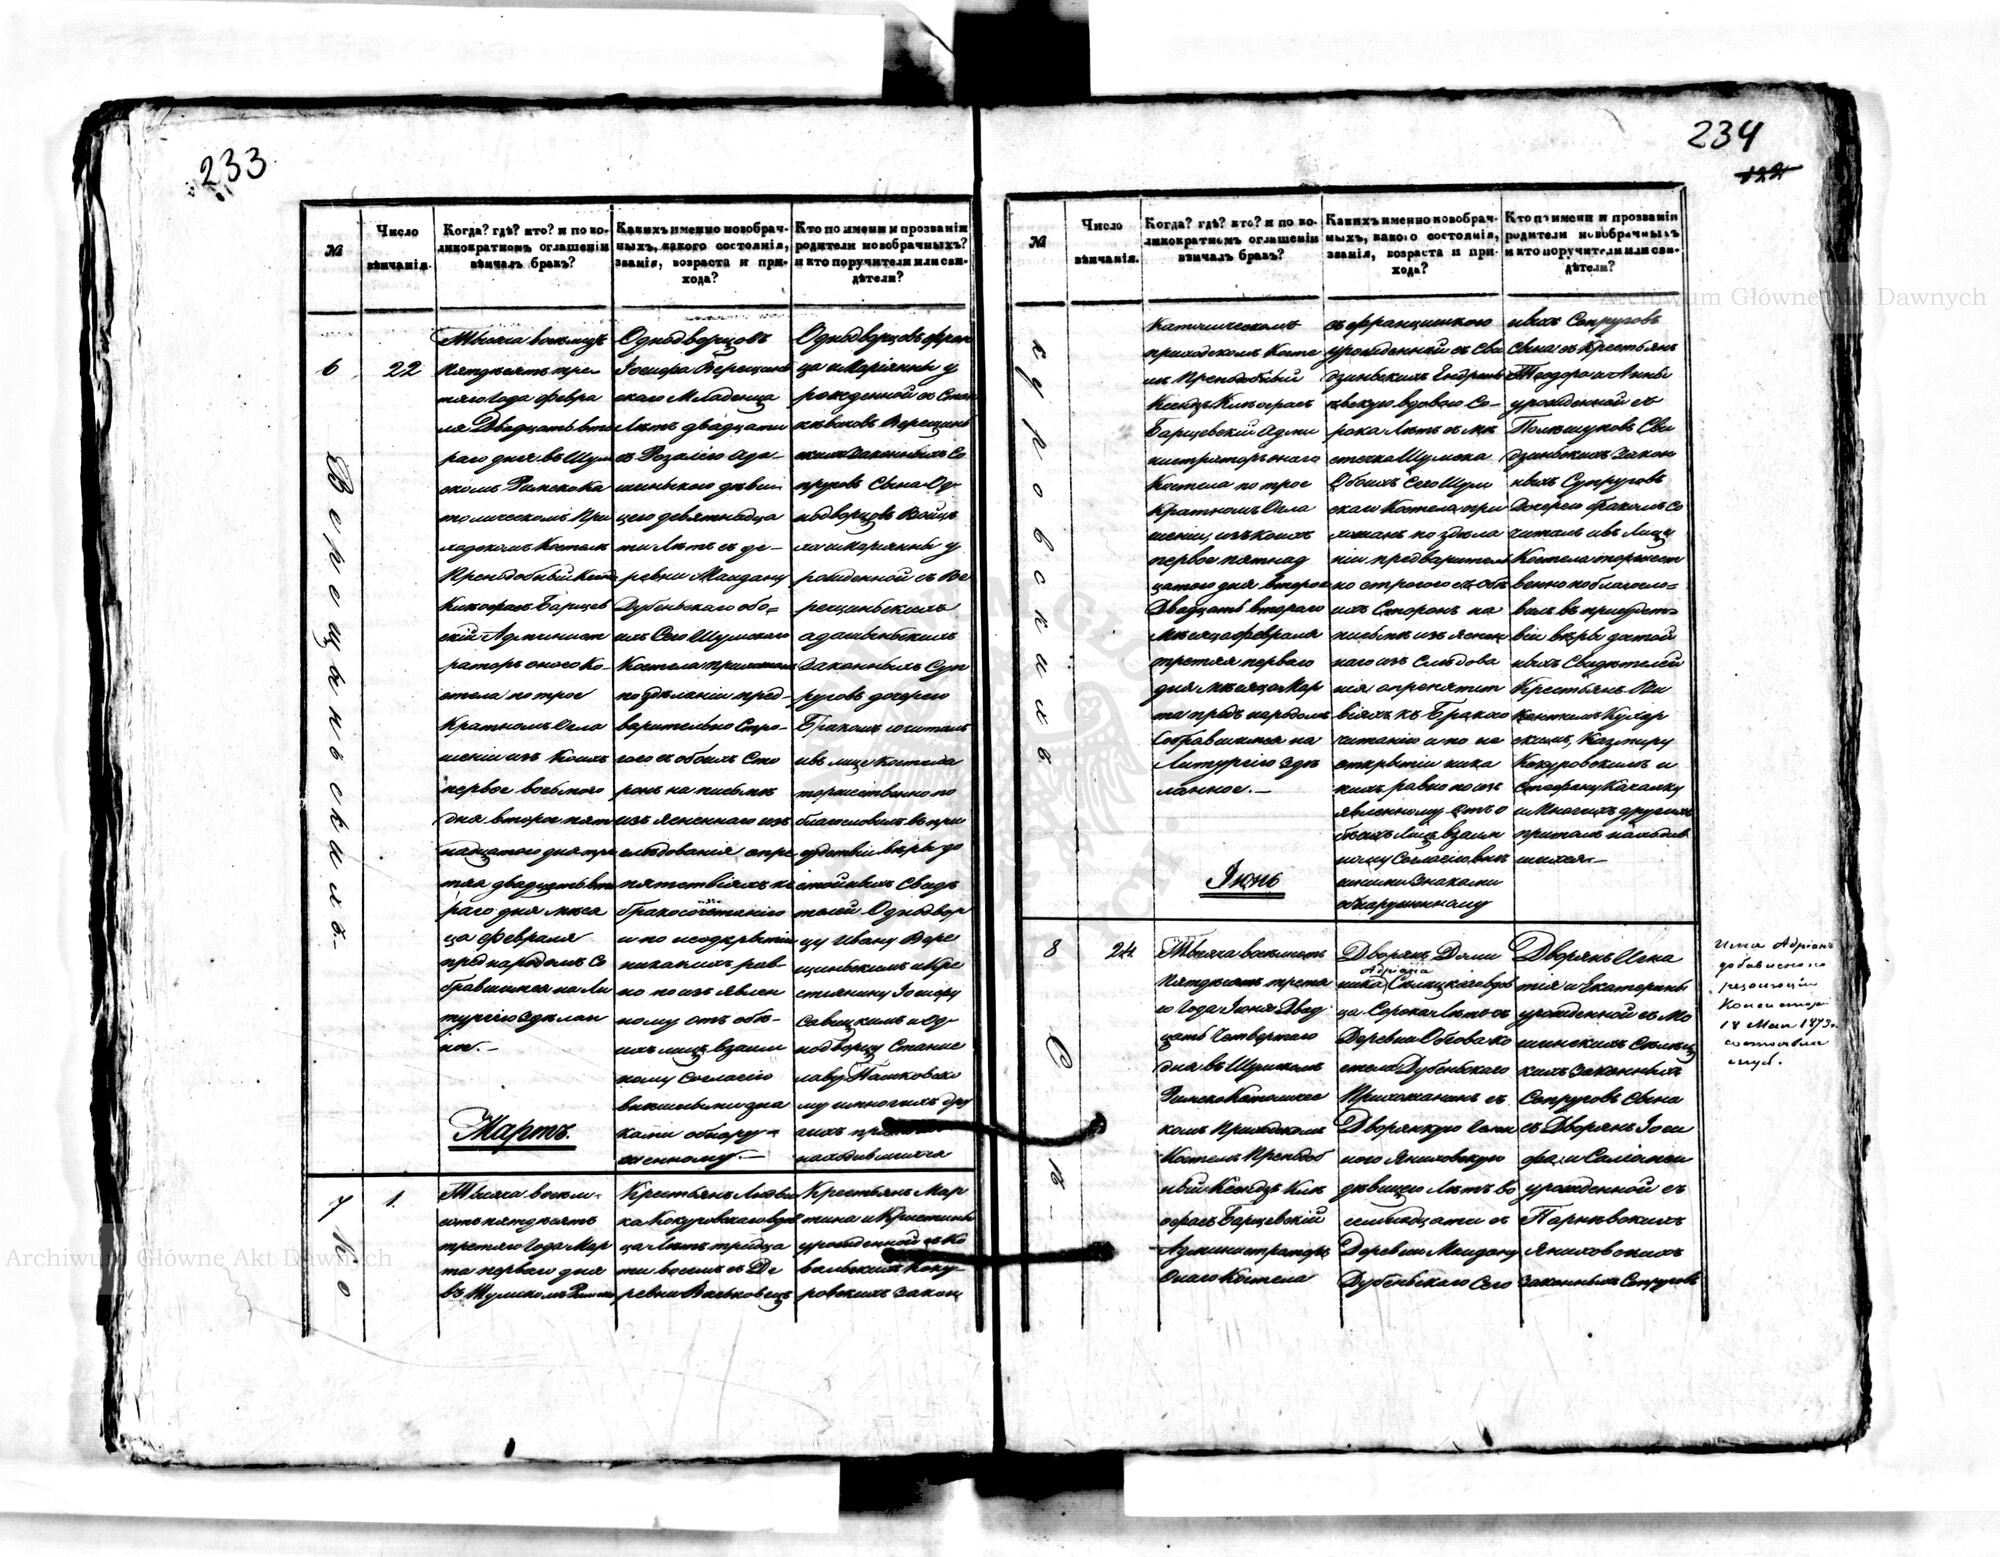 233
№
Число
вѣнчанія.
Когда? гдѣ? кто? и по ко-
ликократномъ оглашеніи
вѣнчалъ бракъ?
Какихъ именно новобрач-
ныхъ, какого состоянія,
званія, возраста и при-
хода?
Кто по имени и прозванію
родители новобрачныхъ?
и кто поручители или сви-
дѣтели?
6
22
Верещиньскихъ.
Тысяча восемьсотъ
пятдесятъ тре
тяго Года февра
ля Двадцать вто
раго дня въ Шум
скомъ Римско Ка
толическомъ При
ходскомъ Костелѣ
Преподобный Ксендз
Климофасъ Барщев
скій Админист
раторъ оного Ко-
стела по трое
кратномъ Огла
шеніи изъ коихъ
первое восьмого
дня второе пят
надцатого дня тре
тяя двадцать вто
раго дня мѣся
ца февраля
пред народомъ со
бравшимся на Ли
тургію здѣлан
ное.-
Мартъ.
Однодворцовъ
Іосифа Верещинь
скаго Младенца
Лѣтъ двадцати
съ Розалію Ада-
шиньского дѣви-
цею девятнадца
ти Лѣтъ съ де-
ревни Майдану
Дубеньскаго обо-
ихъ Сего Шумскаго
Костела прихожанъ
по здѣланіи пред-
варительно Стро-
гого съ обоихъ Сто
ронъ на письмѣ
изъясненнаго изъ
слѣдованія о пре
пятствіяхъ къ
бракосочетанію
и по неодкрытіи
никакихъ рав-
но по изъявлен
ному отъ обѣ-
ихъ лицъ взаим
ному согласію
внѣшными зна
ками обнару-
женному.-
Однодворцовъ Фран
ца и Маріянны у
рожденной съ Стан
кѣвковъ Верещинь
скихъ законныхъ Со
пруговъ Сына Од-
нодворцовъ Войцѣ
ха и Маріянны у
рожденной съ Ве
рещиньскихъ
Адашиньскихъ
законныхъ Суп
руговъ дочерію
Бракомъ сочиталъ
и въ лице Костела
торжественно по
благословилъ въ при
сутствіи вѣры до
стойныхъ Свидѣ
телей Однодвор
цу Ивану Вере
щиньскимъ и кре
стиянину Іосифу
Савицкимъ и Од-
нодворцу Станис
лаву Пашковско
му и многихъ дру
гихъ при томъ
находившихся
7
1.
Ко
Тысяча восемь-
сотъ пятдесятъ
третяго Года Мар
та первого дня
въ Шумскомъ Римско
Крестьянъ Людви
ка Кокуровскаго вдов
ца Лѣтъ тридца
ти восемь съ Де
ревни Васьковецъ
Крестьянъ Мар
тина и Кристины
урожденной съ Ко
вальскихъ Коку-
ровскихъ закон
234
122
№
Число
вѣнчанія.
Когда? гдѣ? кто? и по ко-
ликократномъ оглашеніи
вѣнчалъ бракъ?
Какихъ именно новобрач-
ныхъ, какого состоянія,
званія, возраста и при-
хода?
Кто по имени и прозванію
родители новобрачныхъ
и кто поручители или сви-
дѣтели?
куровскихъ
Католическомъ
приходскомъ Косте
лѣ Преподобный
Ксендзъ Климофасъ
Барщевскій Адми
нистраторъ онаго
Костела по трое
кратномъ Огла
шеніи, изъ коихъ
первое пятнад
цатого дня второе
Двадцать второго
Мѣсяца февраля
третяя первого
дня мѣсяца Мар
та предъ народомъ
Собравшимся на
Литургію здѣ
ланное.-
Іюнь
съ Францишкою
урожденной съ Сви
дзиньскихъ
вскую вдовою Со-
рока Лѣтъ съ мѣ
стечка Шумска
Обоихъ Сего Шум
скаго Костела при
хожанъ по здѣла
ніи предваритель
но строгого съ обѣ
ихъ Сторонъ на
письмѣ изъяснен
наго изъ Слѣдова
нія о препятст
віяхъ къ Брако со
читанію и по не
открытіи ника
кихъ равно по изъ
явленному отъ о
бѣихъ Лицъ взаим
ному Согласію внѣ
шними знаками
обнаруженному
ныхъ Сопруговъ
Сына съ Крестьянъ
Теодора и Анны
урожденной съ
Полѣшуковъ Сви
дзиньскихъ Закон
ныхъ Супруговъ
Дочерію бракомъ со
читалъ и въ Лицѣ
Костела торжест
венно поблагосло-
вилъ въ присутст-
віи вѣры достой
ныхъ Свидѣтелей
Крестьянъ Ви
кентимъ Кухар
скимъ, Казмиру
Кокуровскимъ и
Стефану Качалку
и Многихъ другихъ
притомъ находив
шихся.-
8
24.
Тысяча восемьсотъ
Пятдесятъ третя
го Года Іюня Двад
цать Четвертого
дня въ Шумскомъ
Римско Католичес
комъ Приходскомъ
Костелѣ Преподоб
ный Ксендзъ Кли
офасъ Барщевскій
Администраторъ
Онаго Костела
Дворянъ Доми
Адріана
ника Сѣлицкаго вдов
ца Сорока Лѣтъ съ
Деревни Обгова ко
стела Дубеньскаго
Прихожанинъ съ
Дворянкую
Яниховскую
дѣвицею Лѣтъ во
семнадцати съ
Деревни Майдану
Дубеньскаго Сего
Дворянъ Игна
тія и Екатерины
урожденной съ Мо
шинскихъ Сѣлиц
кихъ законныхъ
Сопруговъ Сына
съ Дворянъ Іоси
фа, и Саломеи
урожденной съ
Парнѣвскихъ
Яниховскихъ
законныхъ Сопруговъ
Имя Адріанъ
добавлено по
резолюціи
Консисторіи
18 Мая 1873 г.
Archiwum Główne Akt Dawnych
Archiwum Główne Akt Dawnych